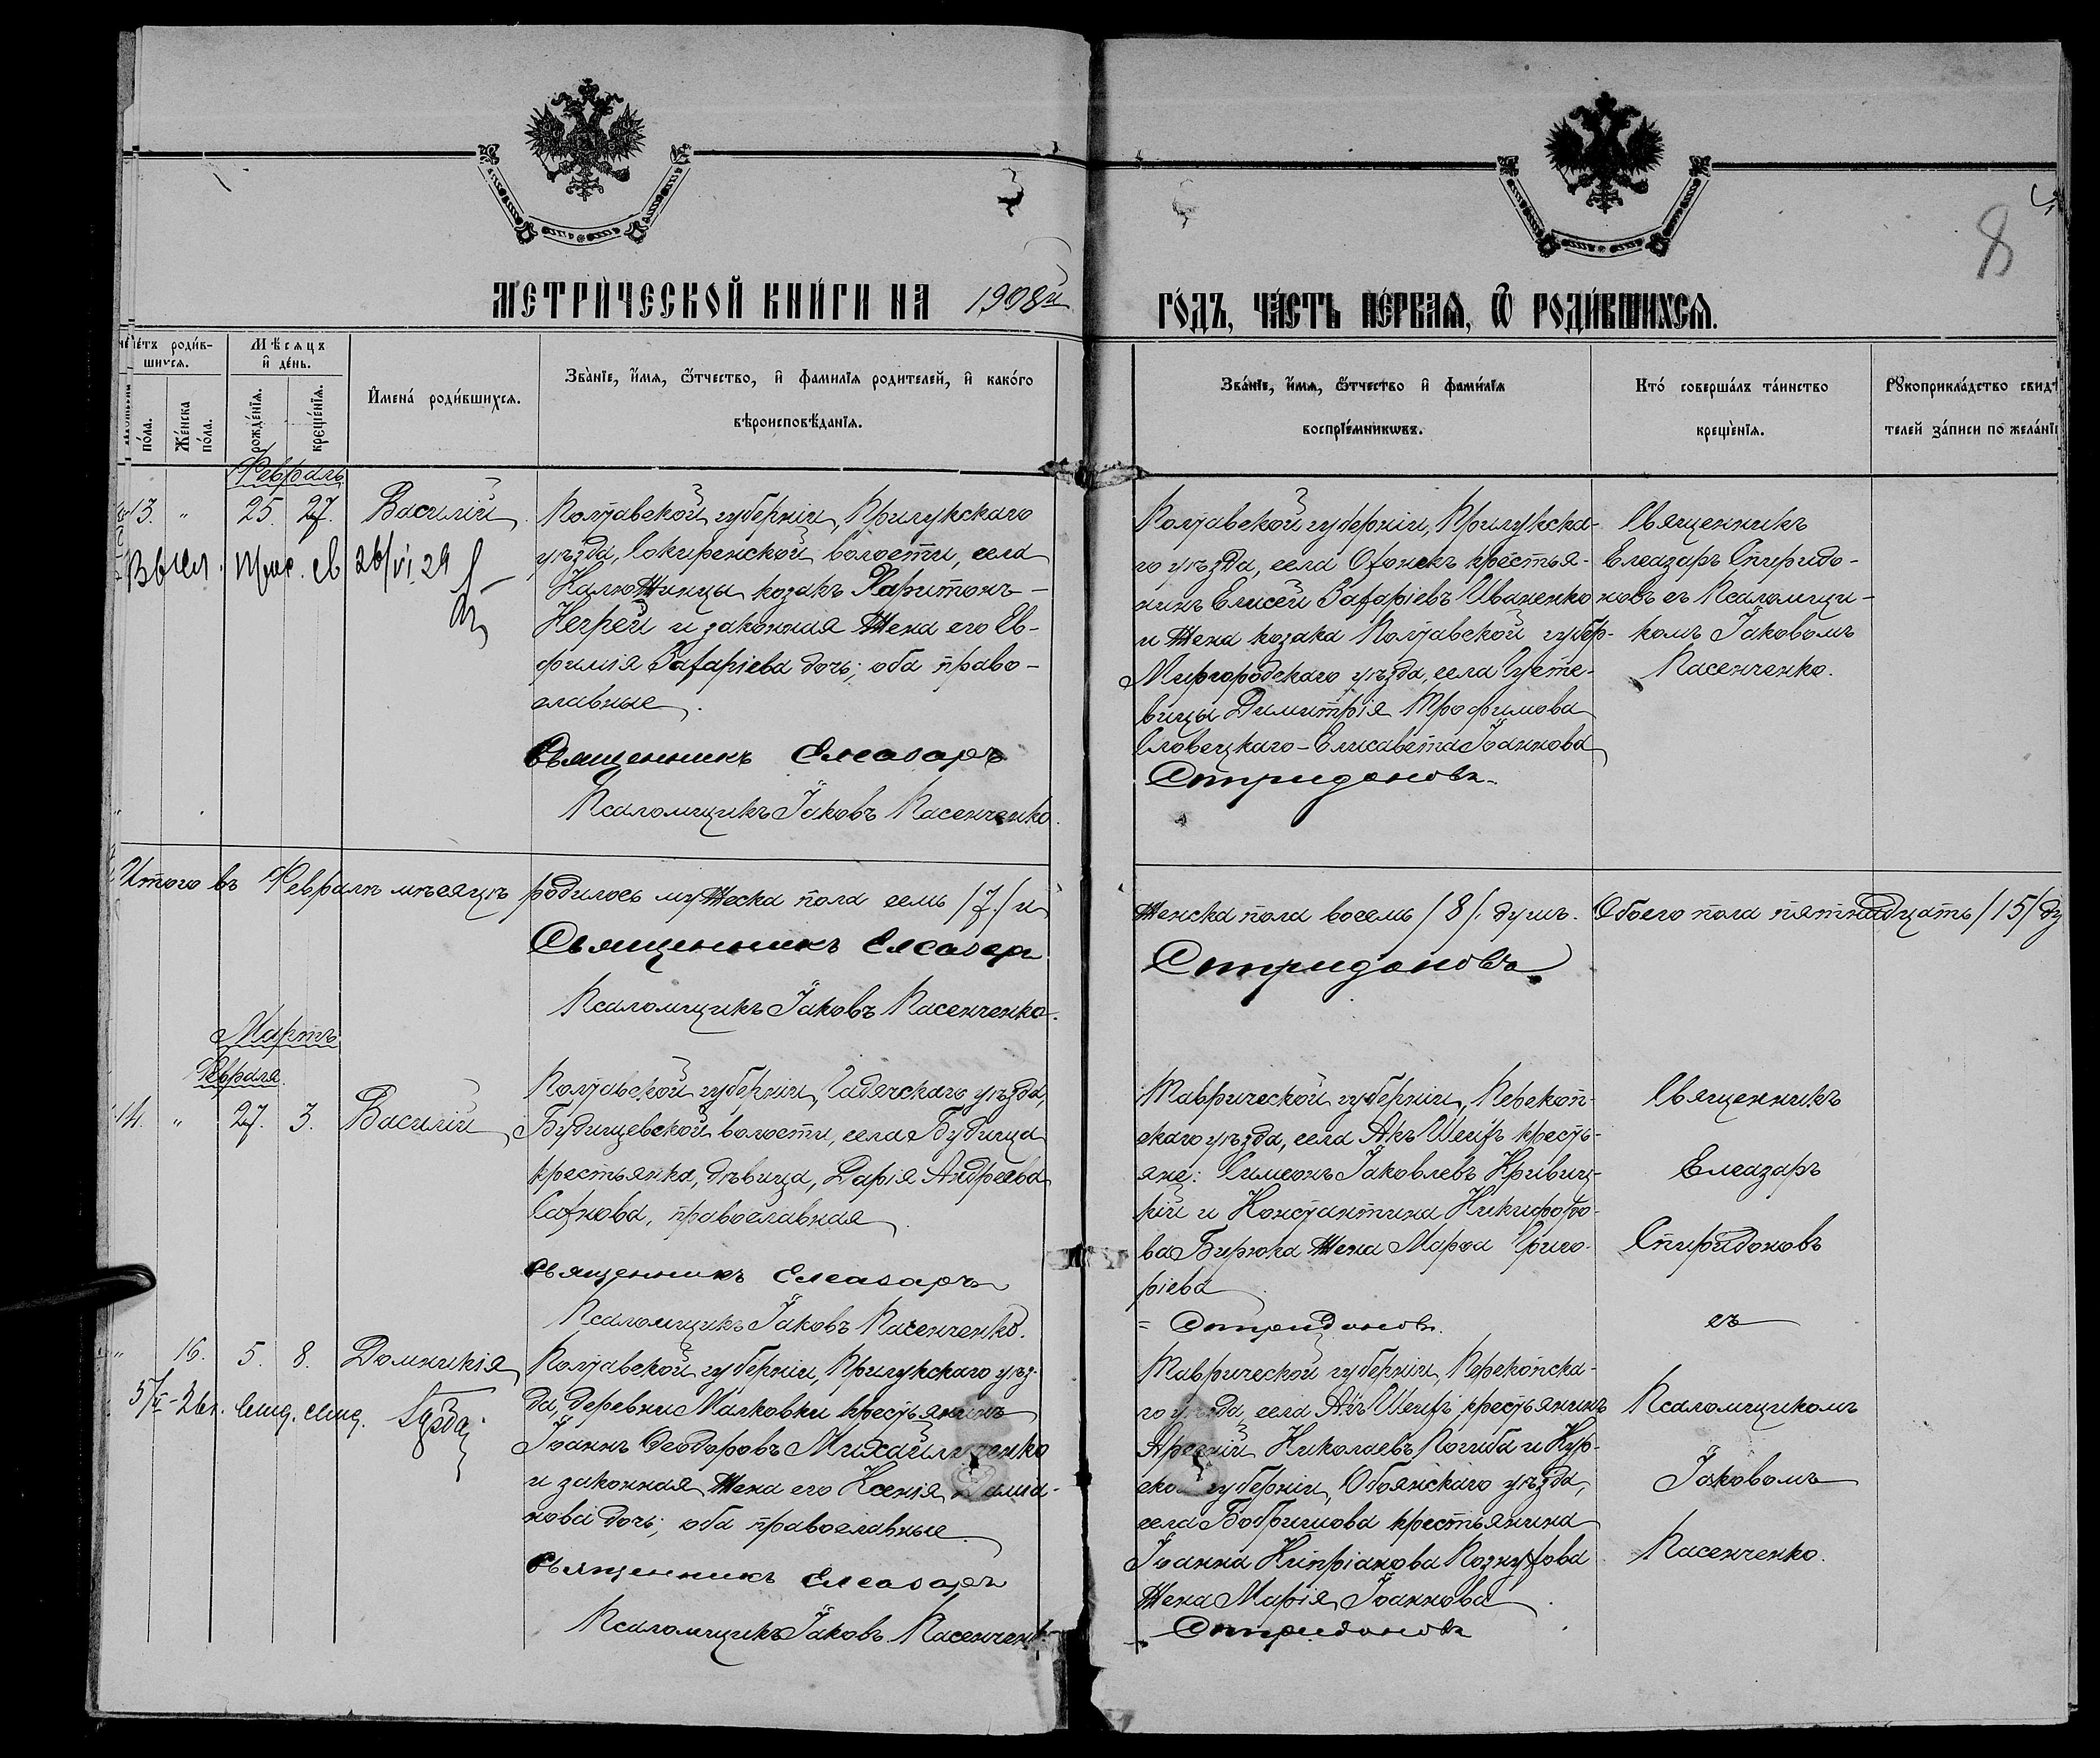 МЕТРИЧЕСКОЙ КНИГИ НА 1908й
ГОДЪ, ЧАСТЬ ПЕРВАЯ, Ѿ РОДИВШИХСЯ.
8
Счетъ родив-
шихся.
Мѣсяцъ
и день.
пола.
Женска
пола.
рожденія.
крещенія.
Имена родившихся.
Званіе, имя, ѿтчество, и фамилія родителей, и какого
вѣроисповѣданія.
Званіе, имя, ѿтчество и фамилія
воспріемниковъ.
Кто совершалъ таинство
крещенія.
Рꙋкоприкладство свид
телей записи по желані
Февраль
13. " 25. 27. Василій
26/VI 29
Полтавской губерніи, Прилукскаго
уѣзда, Сокиренской волости, села
Калюжинцы козакъ Харитонъ
Негрей и законная жена его Ев-
фимія Захаріева дочь; оба право-
славные.
Священникъ Елеазаръ
Псаломщикъ Іаковъ Пасенченко.
Полтавской губерніи, Прилукска-
го уѣзда, села Озонекъ крестья-
нинъ Елисей Захаріевъ Иваненко
и жена козака Полтавской губер-
Миргородскаго уѣзда, села Сусте-
вицы Димитрія Трофимова
Словецкаго - Елисавета Іоаннова
Спиридоновъ.
Священникъ
Елеазаръ Спиридо-
новъ съ Псаломщи-
комъ Іаковомъ
Пасенченко.
Итого въ Февралѣ мѣсяцѣ родилось мужеска пола семь /7/ и
женска пола восемь /8/. душъ. Обоего пола пятнадцать /15/ ду
Священникъ Елеазаръ
Спиридоновъ
Псаломщикъ Іаковъ Пасенченко.
Мартъ
Февраля.
14. " 27. 3. Василій
Полтавской губерніи, Гадячскаго уѣзда,
Будищевской волости, села Будища
крестьянка, дѣвица, Дарія Андреева
Сахнова, православная.
Священникъ Елеазаръ
Псаломщикъ Іаковъ Пасенченко.
Таврической губерніи, Перекоп-
скаго уѣзда, села Акъ Шеихъ кресть-
яне: Симеонъ Іаковлевъ Кривиц-
кій и Константина Никифоро-
ва Бирюка жена Марфа Григо-
ріева
= Спиридоновъ.
Священникъ
Елеазаръ
Спиридоновъ
съ
" 16. 5. 8. Домникія
Полтавской губерніи, Прилукскаго уѣз-
да, деревни Малковки крестьянинъ
Іоаннъ Ѳеодоровъ Михайличенко
и законная жена его Ксенія
нова дочь; оба православные.
Священникъ Елеазаръ
Псаломщикъ Іаковъ Пасенченк
Таврической губерніи, Перекопска-
го уѣзда села Акъ Шеихъ крестьянинъ
Николаевъ Погиба и Кур-
ско губерніи, Обоянскаго уѣзда,
села Бобрышова крестьянина
Іоанна Кипріанова Познухова
жена Марія Іоаннова.
Спиридоновъ
Псаломщикомъ
Іаковомъ
Пасенченко.